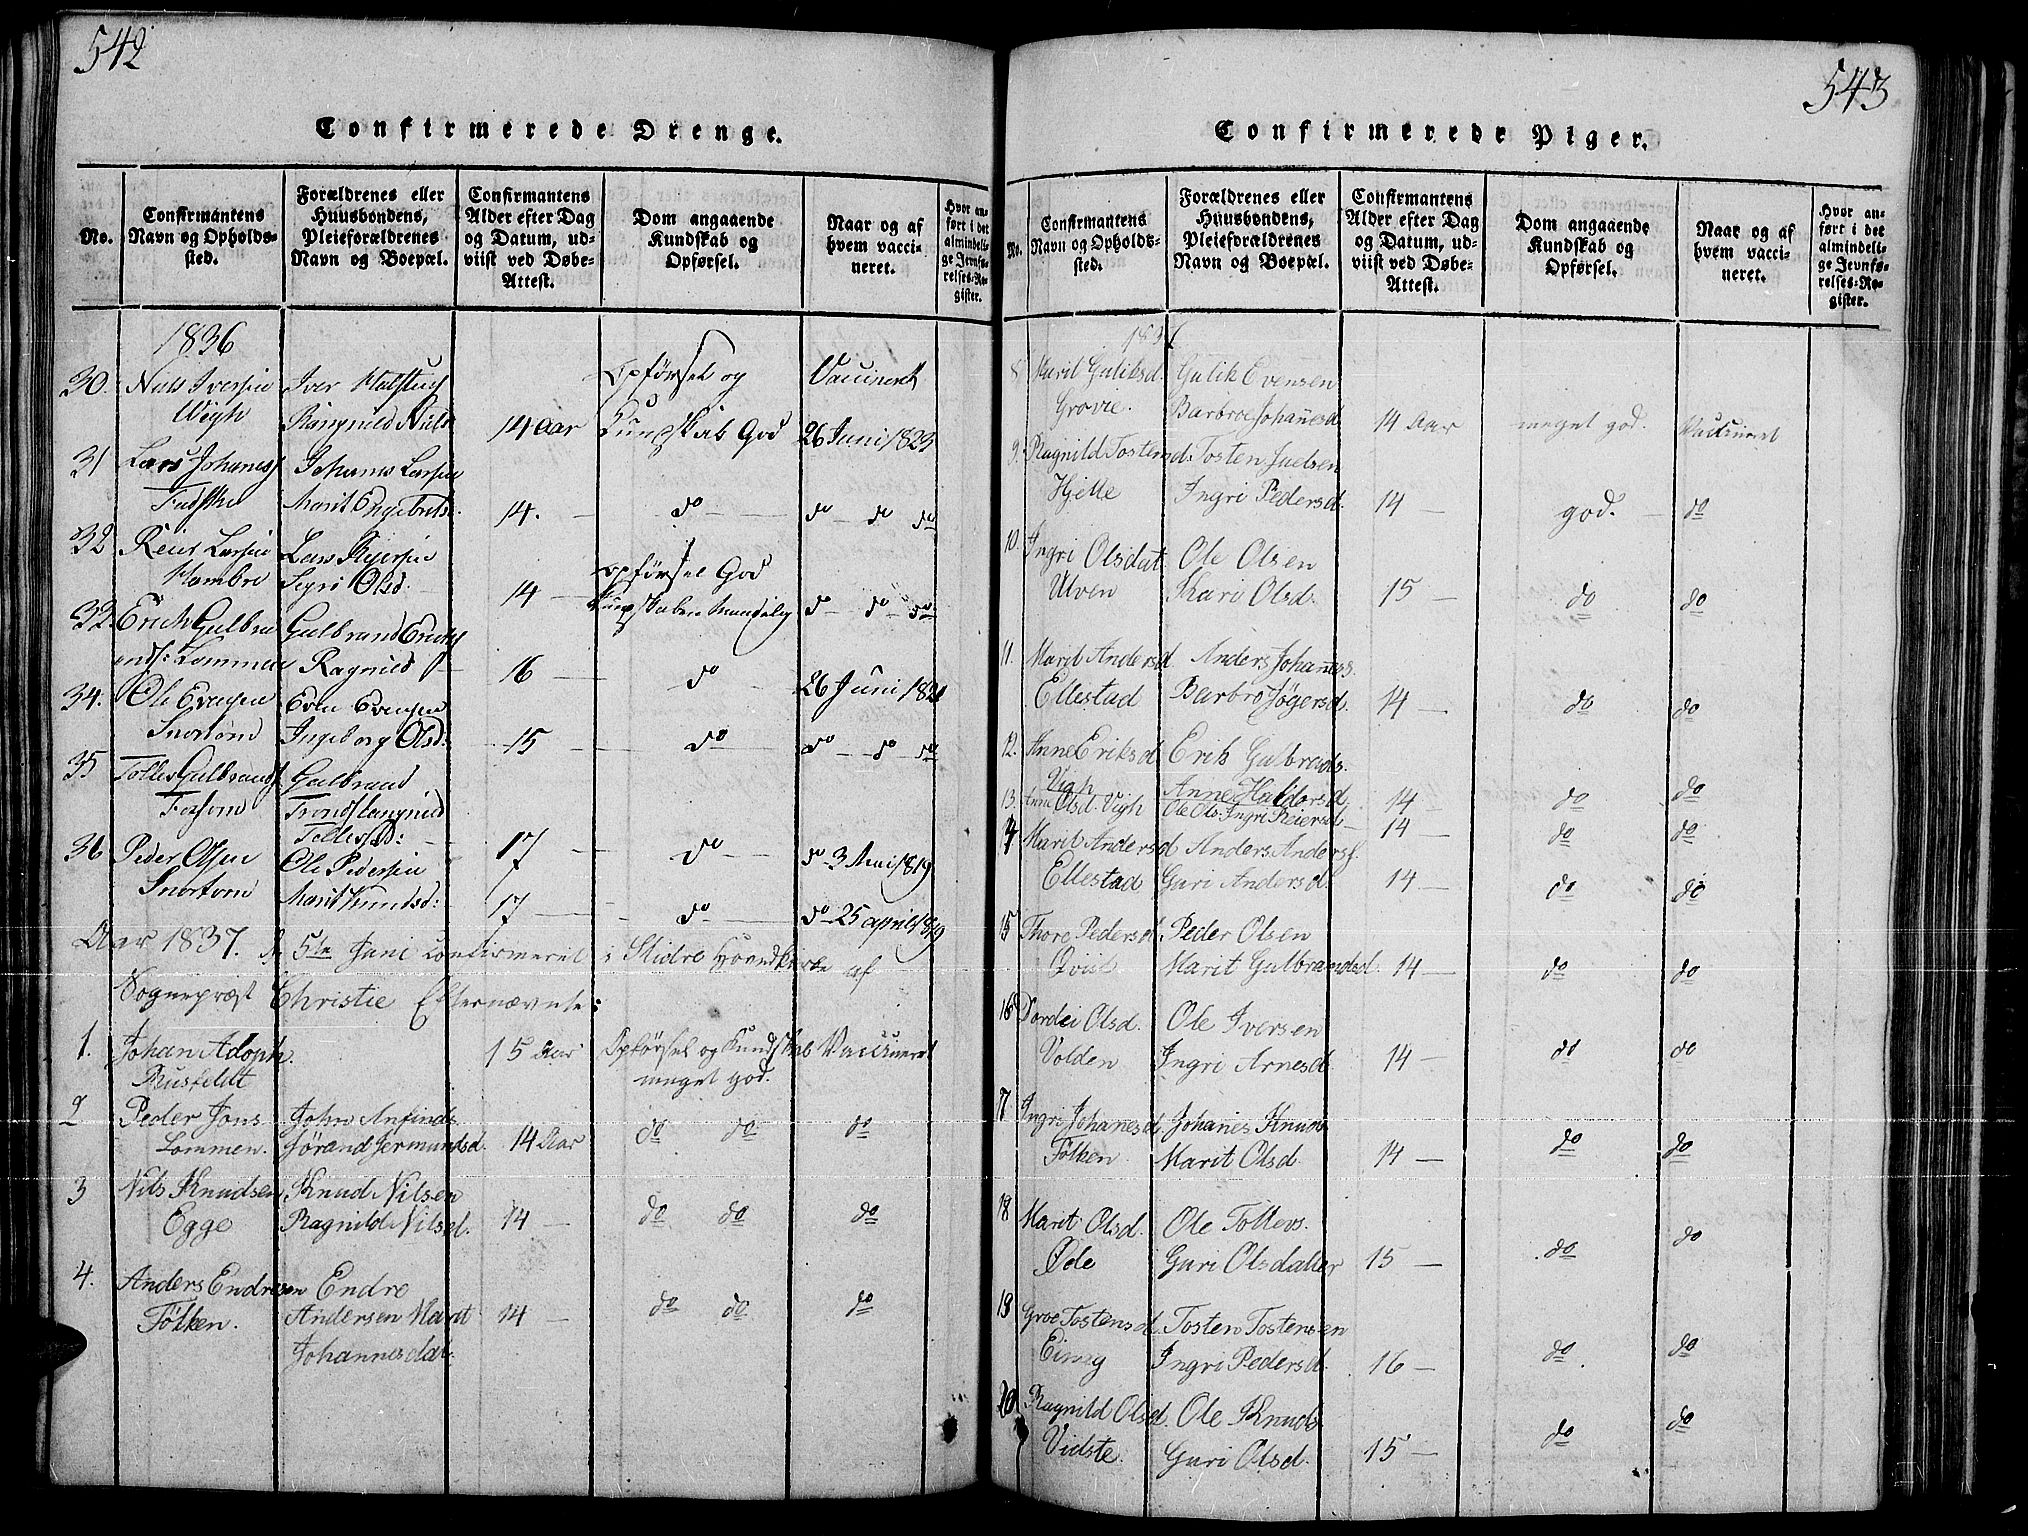 542
Confirmerede Drenge.
No.
Confirmantens Navn og Opholds-sted.
Forældrenes eller Huusbondens, Pleieforældrenes Navn og Boepæl.
Confirmantens Alder efter Dag og Datum, ud-viist ved Døbe-Attest.
Dom angaaende Kundskab og Opførsel.
Naar og af hvem vacci-neret.
Hvor an-ført i det almindeli-ge Jevnfø-relses-Re-gister.
1836
30. Nils Iversen Iver Opførsel og Vaccineret
Wigh Rangnild Nilsd 14 Aar Kundskab God 26 Juni 1823
31 Lars Johanes Johannes Larsen
Marit Engebretsd. 14. — do — do — do do
32 Reier Larsen Lars Reiersen opførsel God
Hambre Segri Olsd. 14 — do — do — do
32. Erich Gulbra Gulbrand Erichs
ends: Lommen Ragnild 16 — do — 26 Juni 1821
34. Ole Evensen Even Evensen
Snortom Ingeborg Olsd: 15 — do — do — do — do
35 Tolles Gulbrands Gulbrand
Fossom Tronds Rangnild
Tollefsd: 17 — do — do 3 Mai 1819
36 Peder Olsen Ole Pedersen
Snortom Marit Knudsd: 17 — do — do 25 april 1819
Aar 1837. d. 5te Juni Confirmeret i Slidre Hovedkirke af
Sognepræst Christie Efternævnte:
1. Johan Adoph. 15 Aar Opførsel og Kundskab Vaccineret
Rusfeldt meget god.
2 Peder Jons John Anfinds
Lommen. Jørand Jermundsd. 14 Aar do do do
3 Nils Knudsen Knud Nilsen
Egge Ragnild Nilsd. 14 — do do do
4. Anders Endresen Endre
Følken. Andersen Marit 14 — do do do
Johannesdat.
543
Confirmerede Piger.
No.
Confirmantens Navn og Opholds-sted.
Forældrenes eller Huusbondens, Pleieforældrenes Navn og Boepæl.
Confirmantens Alder efter Dag og Datum, ud-viist ved Døbe-Attest.
Dom angaaende Kundskab og Opførsel.
Naar og af hvem vacci-neret.
Hvor an-ført i det almindeli-ge Jevnfø-relses-Re-gister.
8 Marit Guliksd. Gulik Evensen
Grovie. Barbroe Johanesd 14 Aar meget god. Vaccineret
9. Ragnild Tostensd. Tosten Juelsen
Hjelle Ingri Pedersd. 14 — god. — do
10. Ingri Olsdat. Ole Olsen
Ulven Kari Olsd. 15 — do do
11. Marit Andersd. Anders Johaness.
Ellestad Barbro Jøgersd. 14 — do do
12. Anne Eriksd Erik Gulbrads.
Vigh Anne Haldorsd 14 — do do
13. Anne Olsd. Vigh Ole Ols. Ingri Reiersd 14 — do do
14 Marit Andersd Anders Anders.
Ellestad Guri Andersd. 14 — do do
15 Thore Pedersd Peder Olsen
Qvist Marit Gulbrandsd. 14 — do do
16 Dordei Olsd. Ole Iversen
Volden Ingri Arnesd. 14 — do do
17 Ingri Johanesd. Johanes Knuds
Følken Marit Olsd. 14 — do do
18 Marit Olsd. Ole Tollevs.
Øde Guri Olsdatter 15 — do do
19 Groe Tostensd. Tosten Tostensen
Ingri Pedersd. 16 — do do
20 Ragnild Olsd. Ole Knuds
Vidste. Guri Olsd. 15 — do do